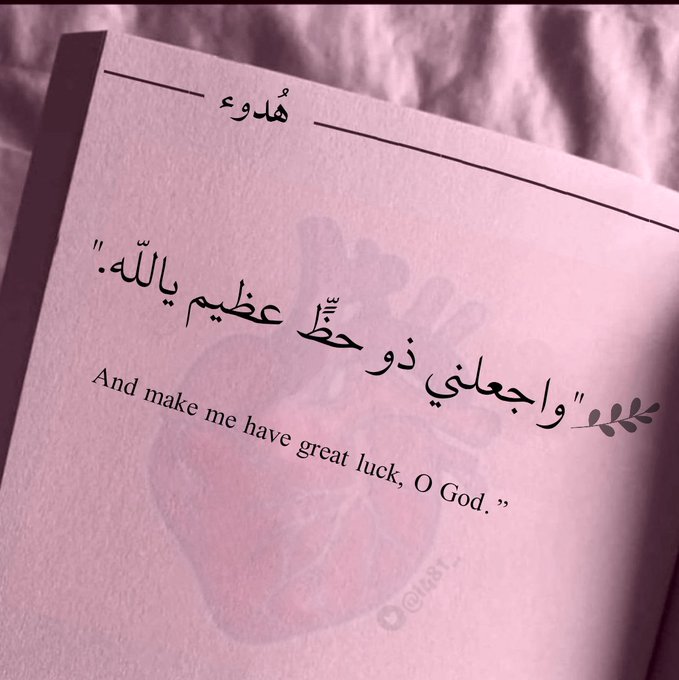 هُدوء
"واجعلني ذو حظٍّ عظيم ياللّه."
And make me have great luck, O God.”